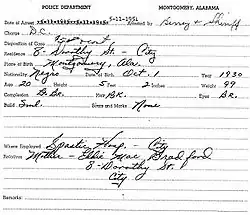 POLICE DEPARTMENT MONTGOMERY, ALABAMA
Date of Arrest 5-11-1951 Arrested by Berry &
Charge D.C.
Disposition of Case
Residence 8- Dorothy St - City
Place of Birth Montgomery, Ala.
Nationality Negro Date of Birth Oct. 1 1930
Age 20 Height 5 Feet 2 Inches Weight 99
Completion Hair BK. Eyes BR.
Build and None
Where Employed Hosp - City
Relatives Mother - Mae Bradford
8- Dorothy St.
City
Remarks: